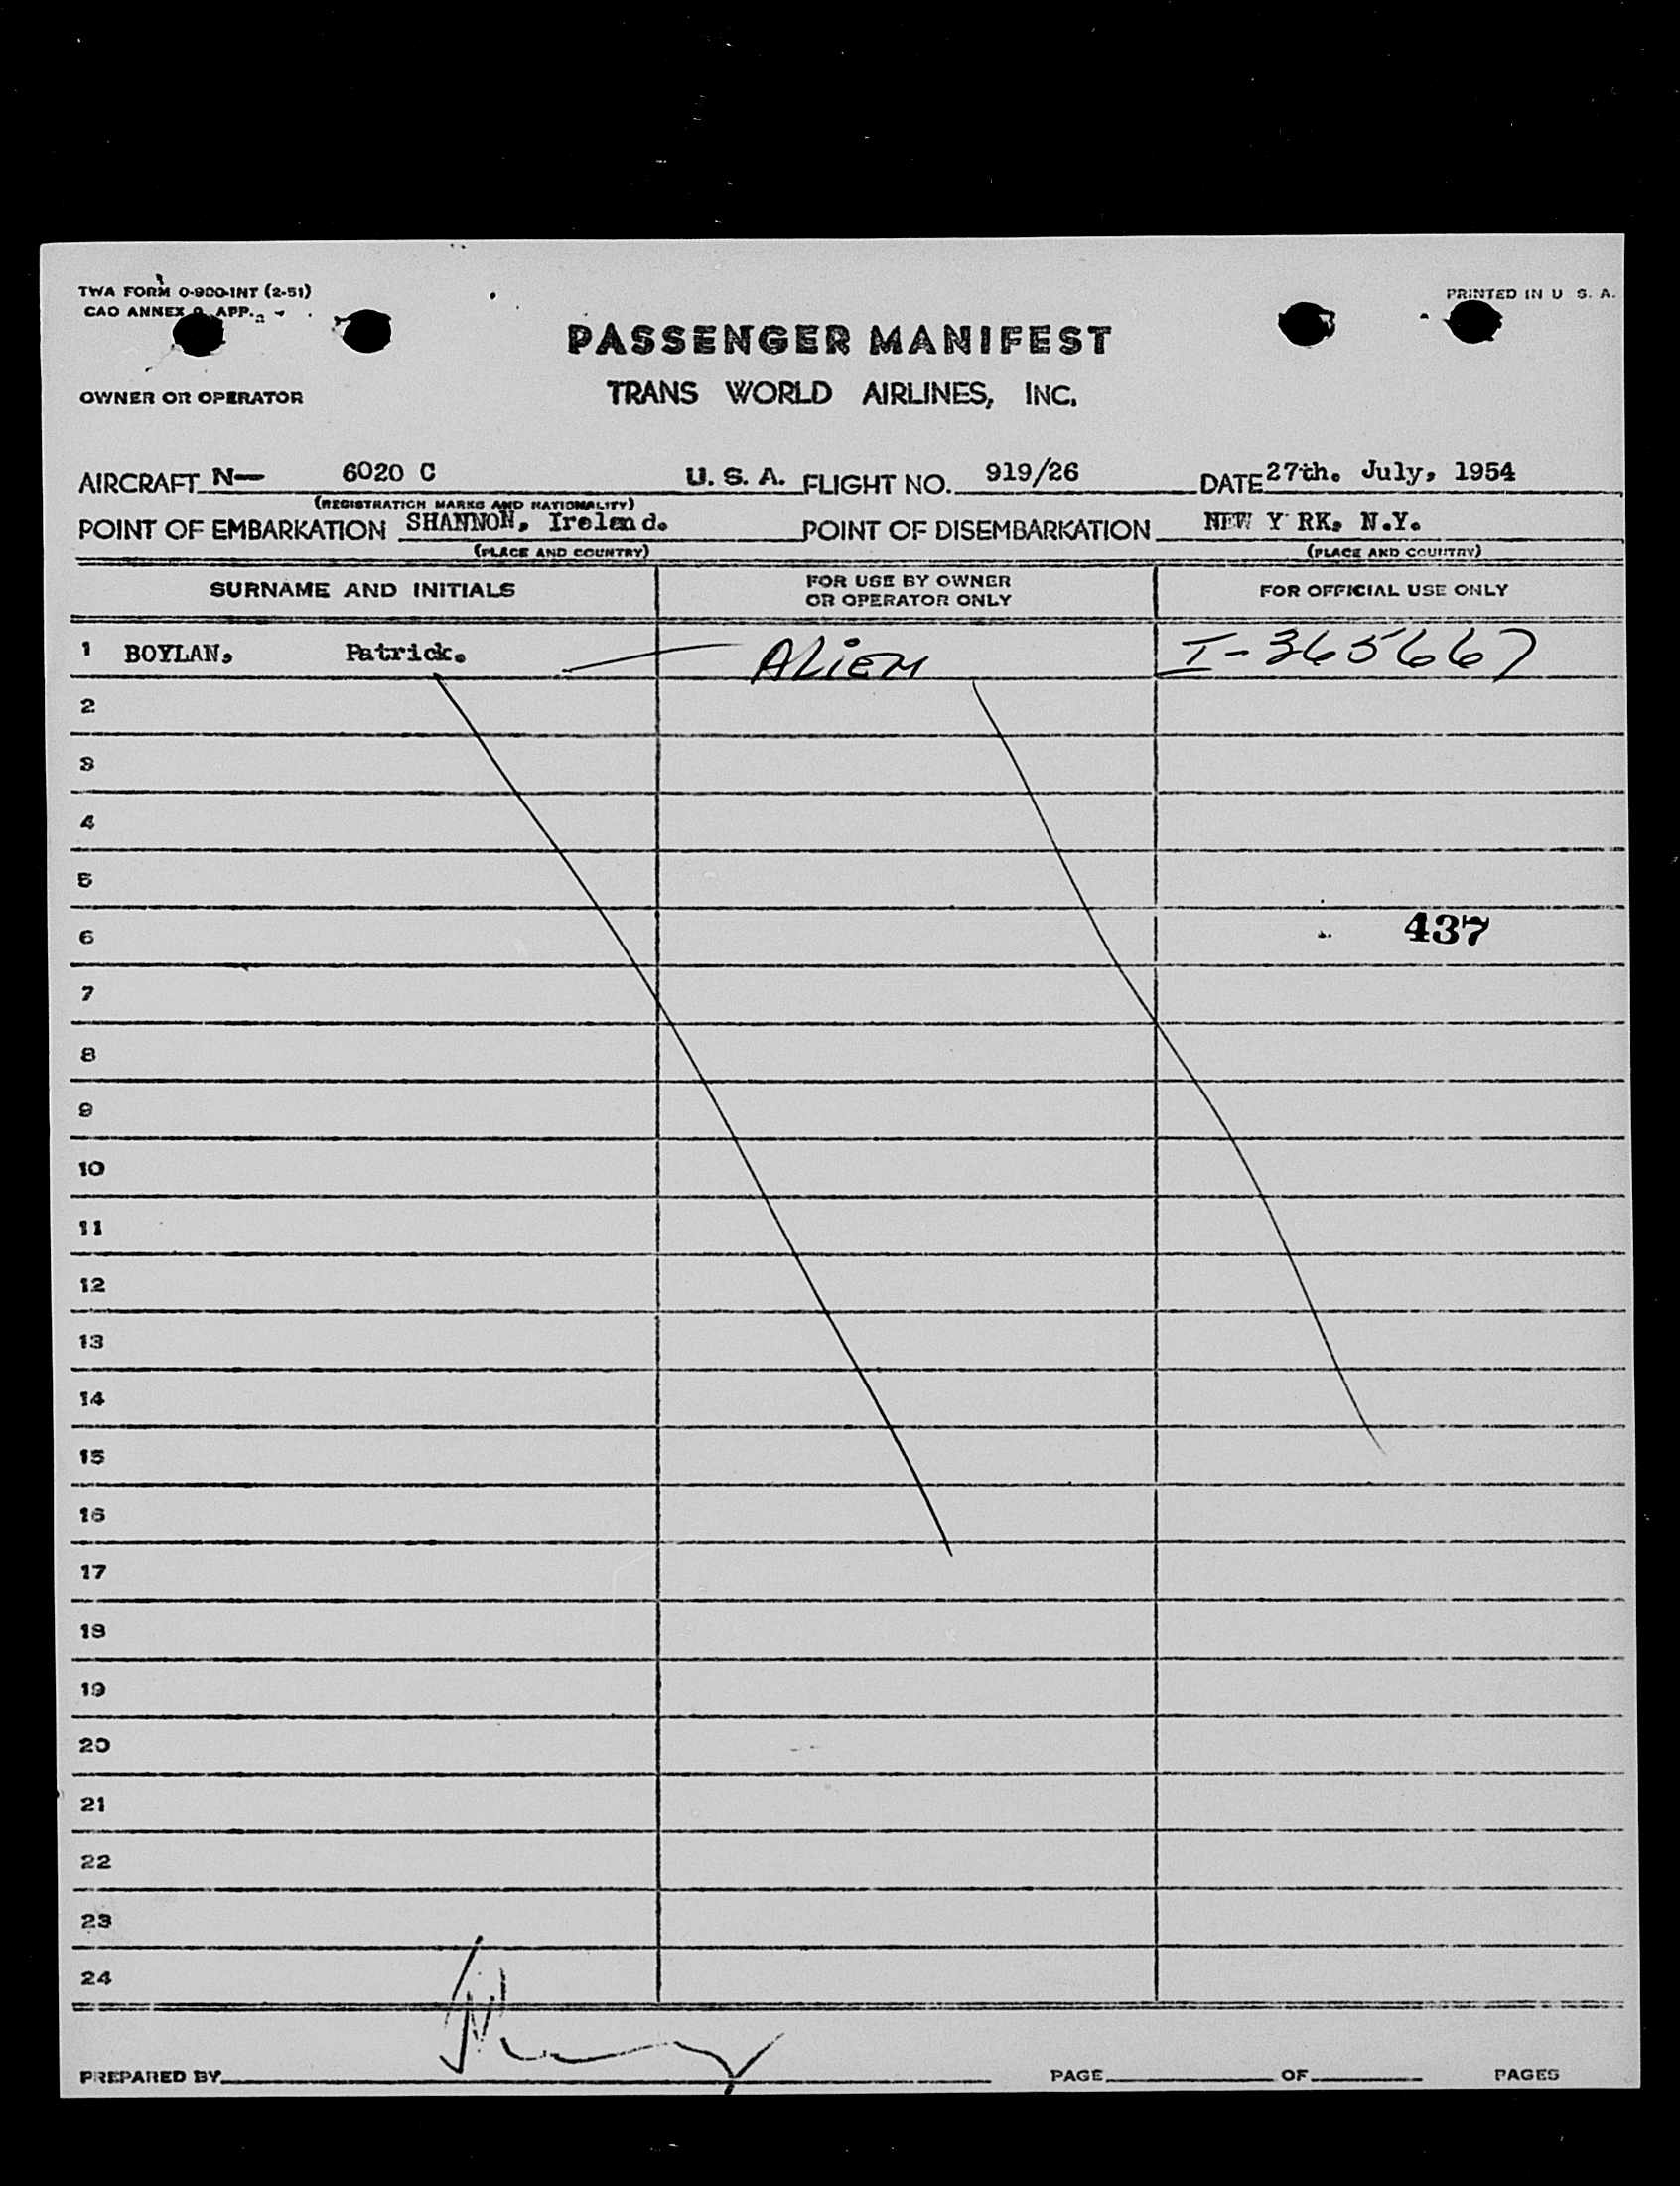 TWA FORM O-900-INT (2-51)
PRINTED IN U S. A.
CAO ANNEX 9, APP.
PASSENGER MANIFEST
OWNER OR OPERATOR
TRANS WORLD AIRLINES, INC.
AIRCRAFT N— 6020 C U. S. A. FLIGHT NO. 919/26 DATE 27th. July, 1954
(REGISTRATION MARKS AND NATIONALITY)
POINT OF EMBARKATION SHANNON, Ireland. POINT OF DISEMBARKATION NEW Y RK, N.Y.
(PLACE AND COUNTRY) (PLACE AND COUNTRY)
SURNAME AND INITIALS
FOR USE BY OWNER
OR OPERATOR ONLY
FOR OFFICIAL USE ONLY
1 BOYLAN, Patrick. ALIEN I-365667
2
3
4
5
6 437
7
8
9
10
11
12
13
14
15
16
17
18
19
20
21
22
23
24
PREPARED BY PAGE OF PAGES